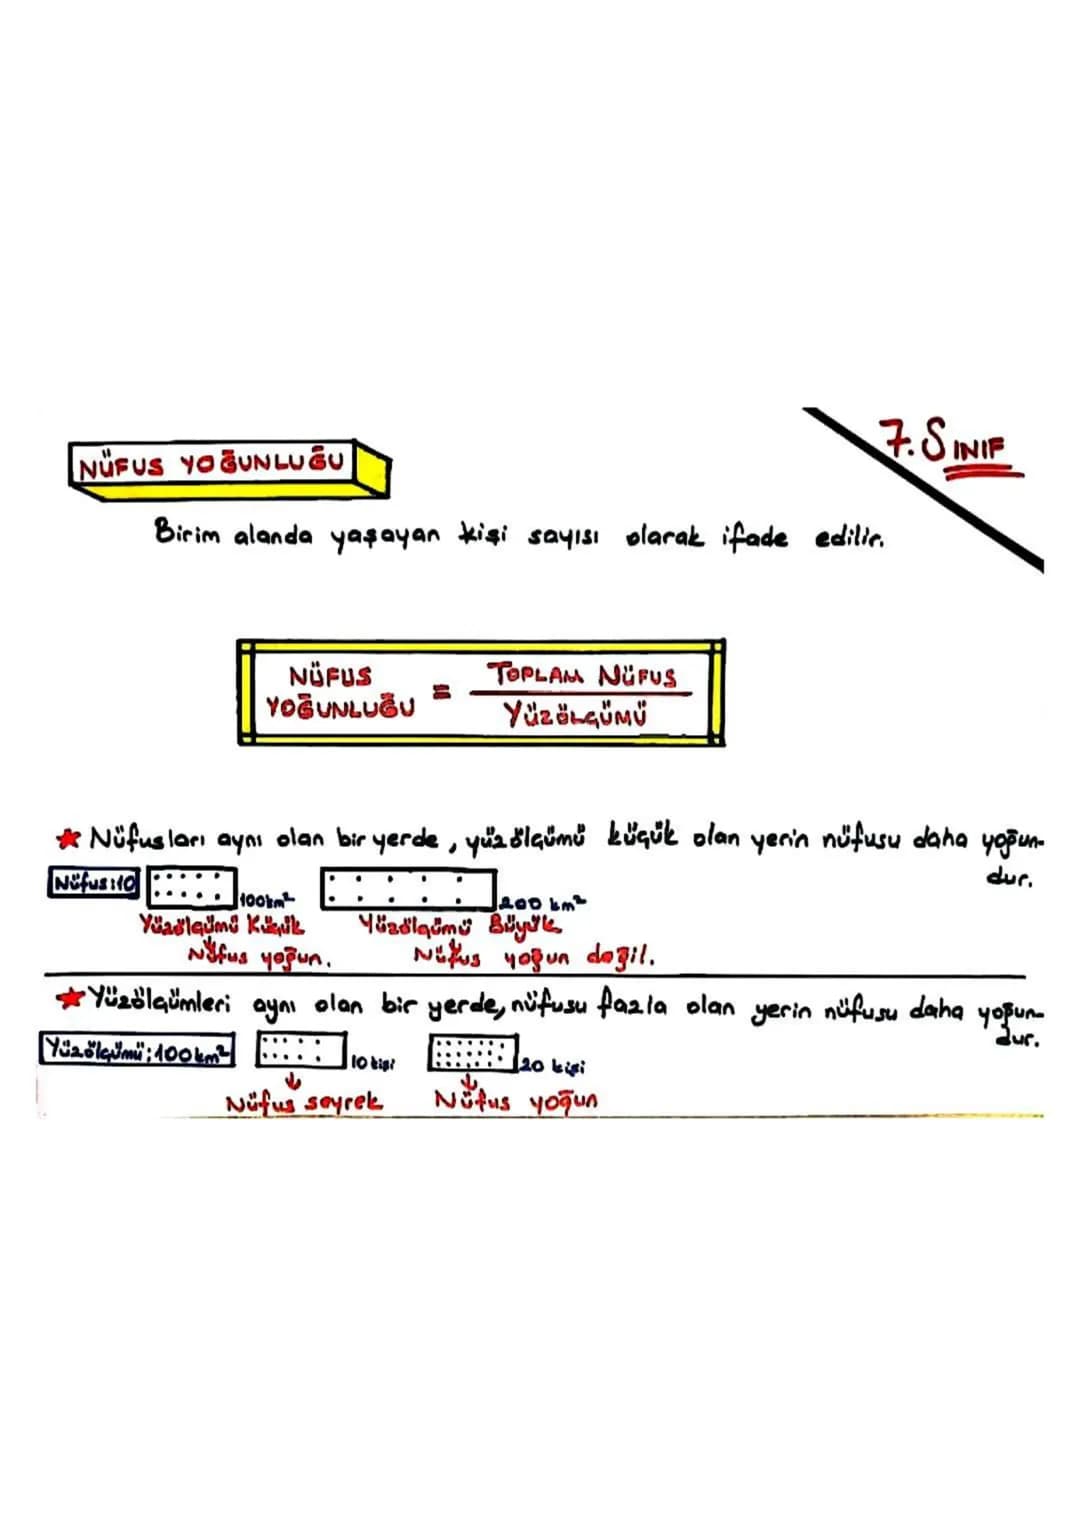 7. SINIF
NÜFUS YOĞUNLUĞU
Birim alanda yaşayan kişi sayısı olarak ifade edilir.
NÜFUS YOĞUNLUĞU = TOPLAM NÜFUS / YÜZÖLÇÜMÜ
★ Nüfusları aynı olan bir yerde, yüzölçümü küçük olan yerin nüfusu daha yoğun-
dur.
Nüfus:10 100km² 200 km²
Yüzölçümü Küçük Yüzölçümü Büyük
Nüfus yoğun. Nüfus yoğun değil.
★ Yüzölçümleri aynı olan bir yerde, nüfusu fazla olan yerin nüfusu daha yoğun-
dur.
Yüzölçümü: 100 km² 10 kişi 20 kişi
Nüfus seyrek Nüfus yoğun